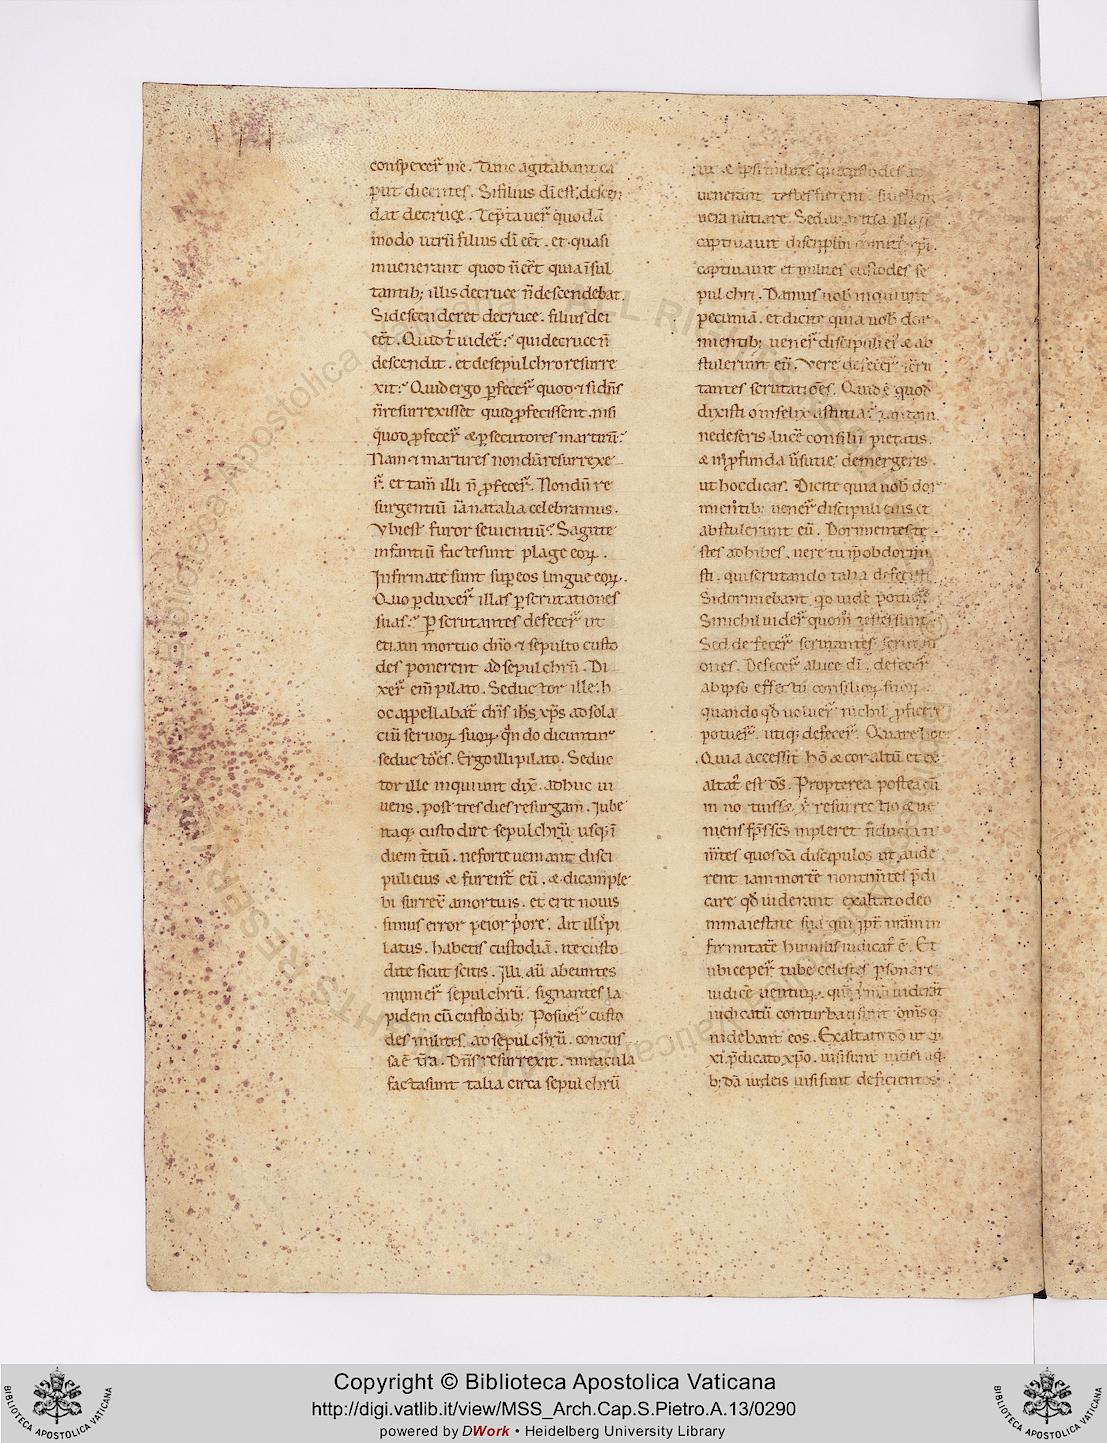 conspexer̄ me. Tunc agitabant ca
put dicentes. Si filius dī est. descen
dat de cruce. Tēptauer̄ quodā
modo utrū filius dī eēt. et quasi
inuenerant quod n̄ eēt quia īsul
tantib; illis de cruce n̄ descendebat.
Si descenderet de cruce. filius dei
eēt. Quid t̄ uidet̄? qui de cruce n̄
descendit. et de sepulchro resurre
xit? Quid ergo ꝓfecer̄ quod & si dn̄s
n̄ resurrexisset quid ꝓfecissent. nisi
quod ꝓfecer̄ & ꝑsecutores martirū?
Nam & martires nondū resurrexe
r̄. et tam̄ illi n̄ ꝓfecer̄. Nondū re
surgentiū iā natalia celebramus.
Vbi est furor seuientiū? Sagitte
infantiū facte sunt plage eoꝝ.
Infirmate sunt suꝑ eos lingue eoꝝ.
Quo ꝑduxer̄ illas ꝑscrutationes
suas? Ꝑscrutantes defecer̄ ut
etiam mortuo dn̄o & sepulto custo
des ponerent ad sepulchrū. Di
xer̄ em̄ pilato. Seductor ille. h
oc appellabat̄ dn̄s ih̄s xp̄s ad sola
ciū seruoꝝ suoꝝ qn̄do dicuntur
seductōes. Ergo illi pilato. Seduc
tor ille inquiunt dix̄. adhuc ui
uens. post tres dies resurgam. Iube
itaq; custodire sepulchrū usq; ī
diem t̄tiū. ne forte ueniant disci
puli eius & furent̄ eū. & dicant ple
bi surrex̄ a mortuis. et erit nouis
simus error peior p̄ore. Ait illis pi
latus. habetis custodiā. ite custo
dite sicut scitis. Illi aū abeuntes
munier̄ sepulchrū. signantes la
pidem cū custodib; Posuer̄ custo
des milites. ad sepulchrū. concus
sa ē t̄ra. Dn̄s resurrexit. miracula
facta sunt talia circa sepulchrū
ut & ipsi milites qui custodes ad
uenerant testes fierent si uellent
uera nuntiare. Sed auaritia illa q̄
captiuauit discipulū comitē xp̄i.
captiuauit et milites custodes se
pulchri. Damus uob̄ inquiunt
pecuniā. et dicite quia uob̄ dor
mientib; uener̄ discipuli ei & ab
stulerunt eū. Vere defecer̄ scru
tantes scrutatiōes. Quid ē quod
dixisti o infelix astutia? tantam
ne deseris lucē consilii pietatis.
& in ꝓfunda ūsutie demergeris.
ut hoc dicas. Dicite quia uob̄ dor
mientib; uener̄ discipuli eius et
abstulerunt eū. Dormientes te
stes adhibes. uere tu ip̄ obdormi
sti. qui scrutando talia defecisti.
Si dormiebant. qd̄ uide potuer̄
Si nichil uider̄ quom̄ testes sunt
Sed defecer̄ scrutantes scrutati
ones. Defecer̄ a luce dī. defecer̄
ab ipso effectu consilioꝝ suoꝝ
quando qd̄ uoluer̄ nichil ꝓficere
potuer̄. utiq; defecer̄. Quare hoc
Quia accessit hō & cor altū et ex
altat̄ est ds̄. Propterea postea cū
in no tuisse xp̄i resurrectio & ue
niens sp̄s sc̄s inpleret fiducia ti
m̄tes quosdā discipulos ut aude
rent iam mortē non tim̄tes p̄di
care qd̄ uiderant exaltato deo
in maiestate sua qui ꝓpt̄ nr̄am in
firmitatē humilis iudicat̄ ē. Et
ubi ceper̄ tube celestes ꝑsonare
iudicē uenturū. quē p̄mū uiderāt
iudicatū conturbati sunt om̄s q̄
uidebant eos. Exaltato dō ut di
xi p̄dicato xp̄o. uisi sunt iudei a q̄
b; dā iudeis uisi sunt deficientes.
Copyright © Biblioteca Apostolica Vaticana
http://digi.vatlib.it/view/MSS_Arch.Cap.S.Pietro.A.13/0290
powered by DWork • Heidelberg University Library
BIBLIOTECA APOSTOLICA VATICANA
BIBLIOTECA APOSTOLICA VATICANA